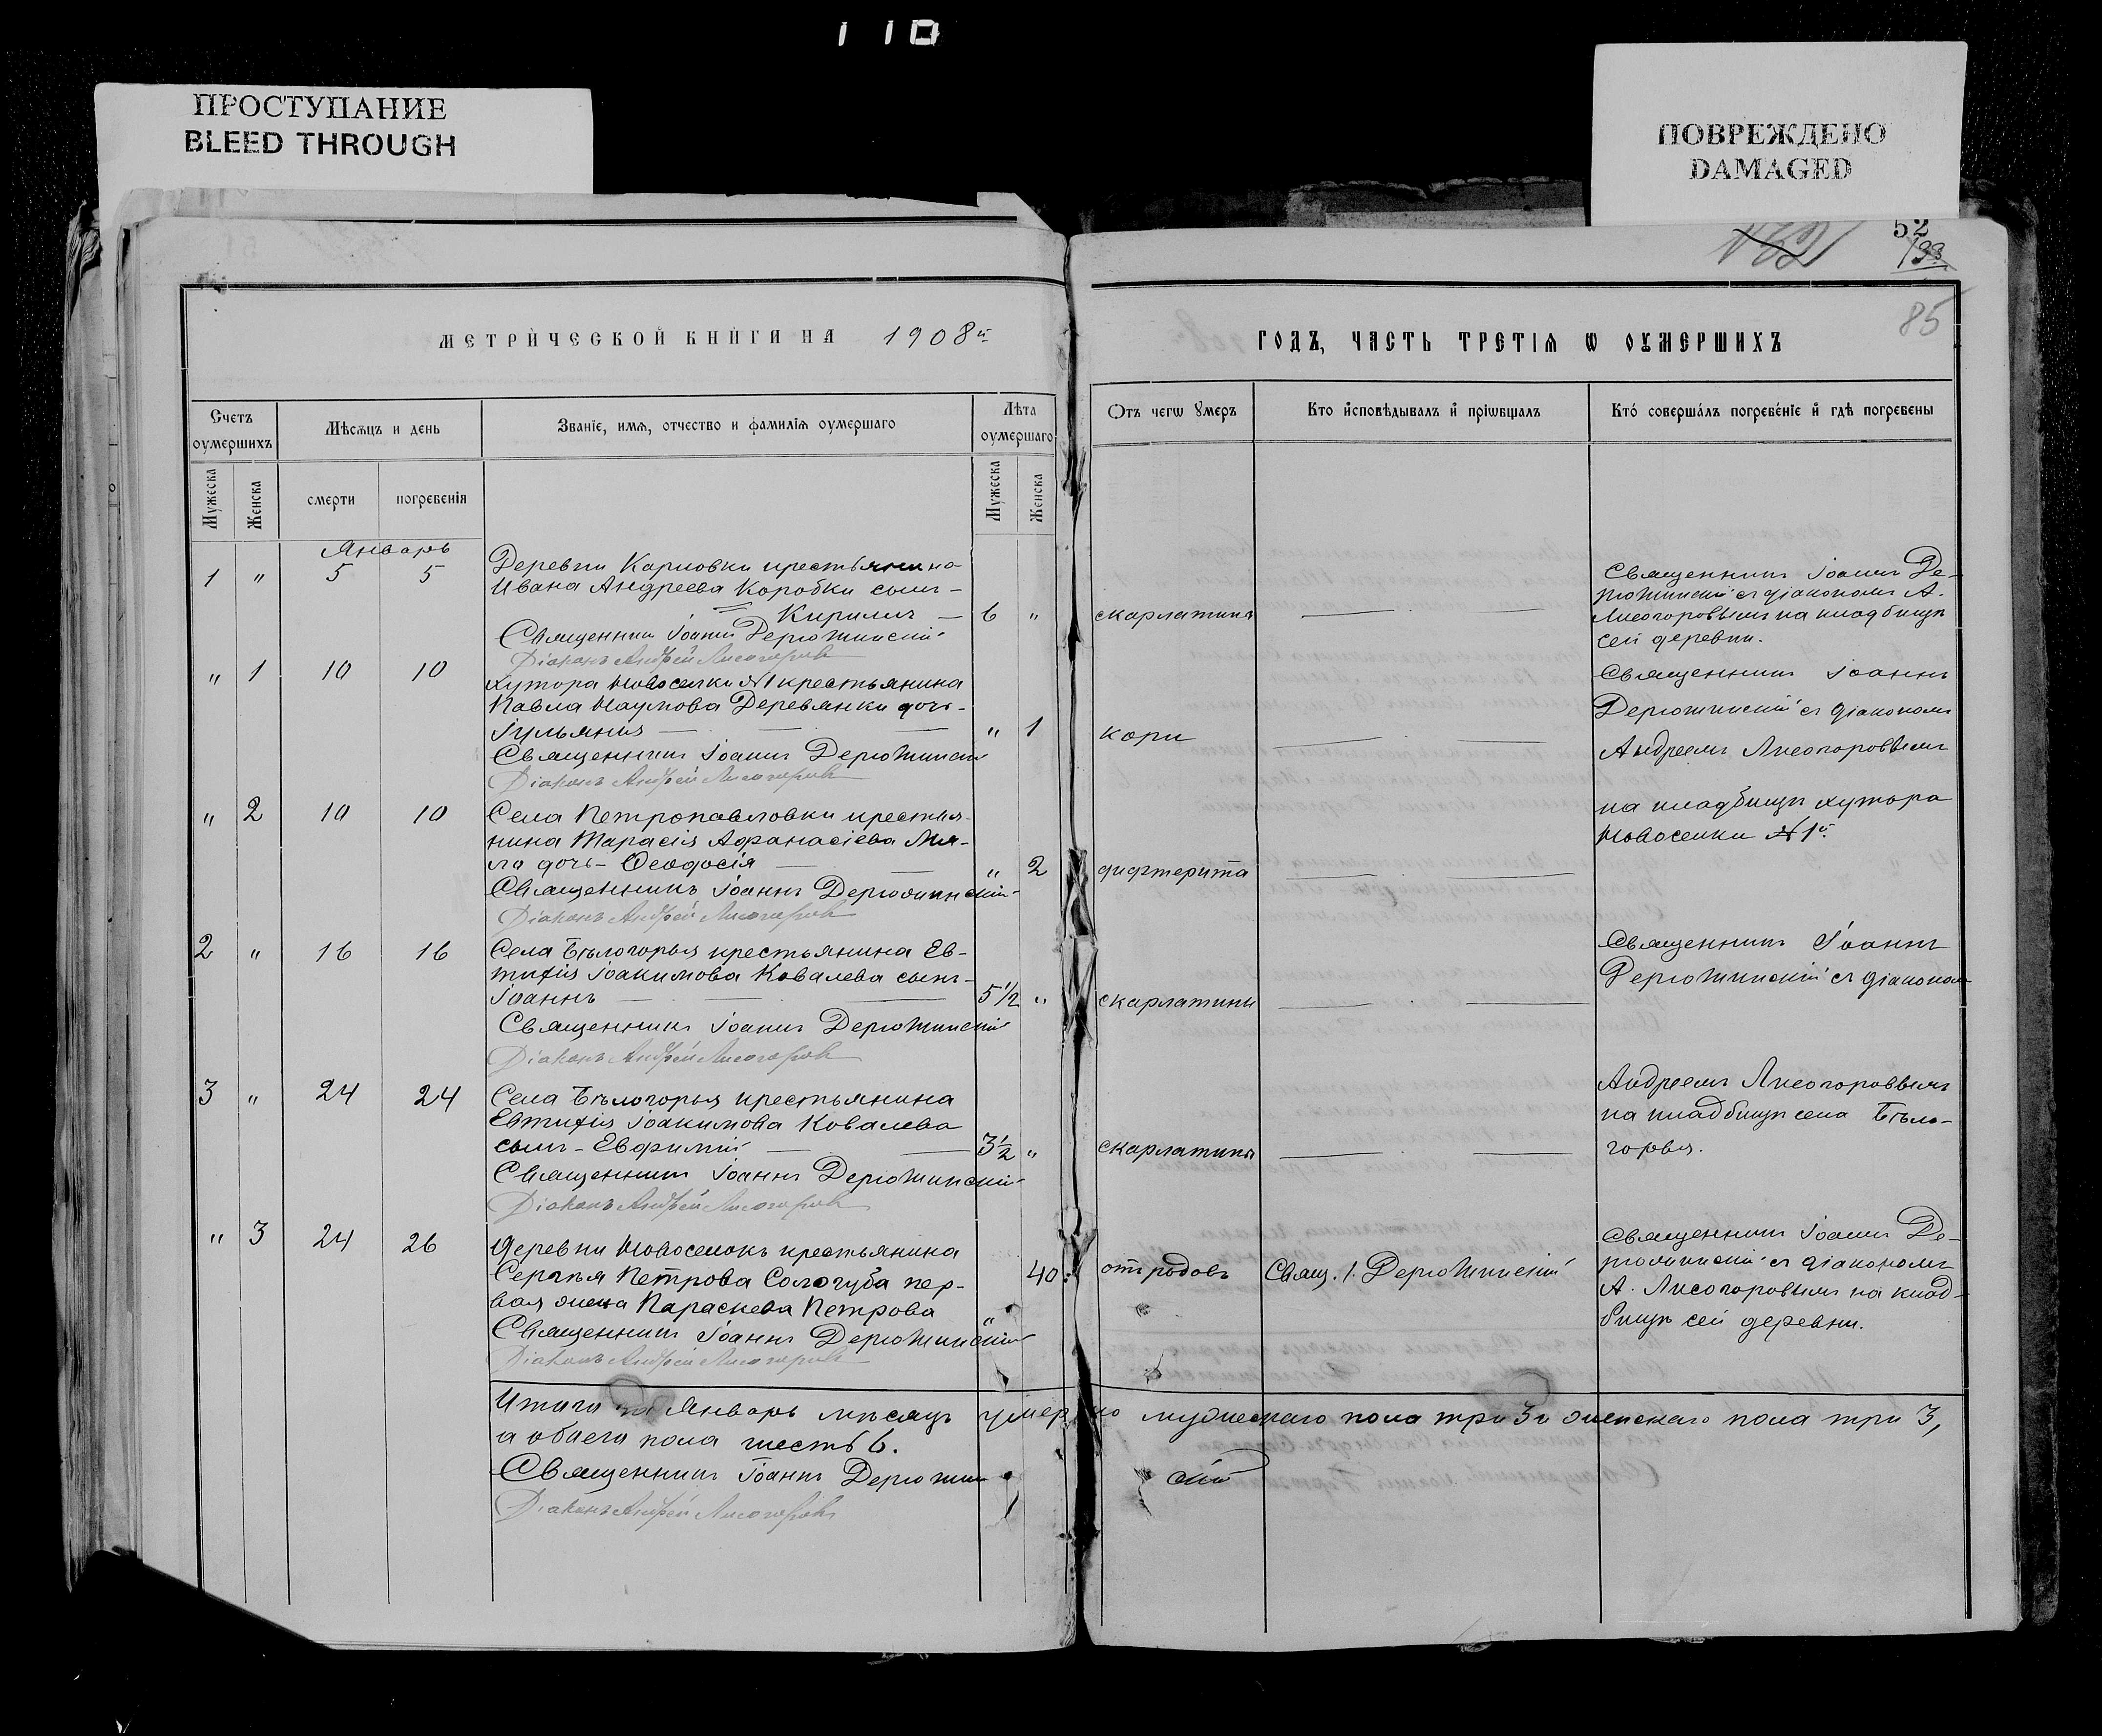 110
ПРОСТУПАНИЕ
BLEED THROUGH
ПОВРЕЖДЕНО
DAMAGED
52
133
85
МЕТРИЧЕСКОЙ КНИГИ НА 1908й
ГОДЪ, ЧАСТЬ ТРЕТІѦ Ѡ ОУМЕРШИХЪ
Счетъ оумершихъ
Мѣсѧцъ и день
Званіе, имѧ, отчество и фамилїѧ оумершаго
Лѣта оумершаго
Отъ чегѡ Умеръ
Кто исповѣдывалъ и прїѡбщалъ
Кто совершалъ погребенїе и гдѣ погребены
Мужеска
Женска
смерти
погребенїѧ
Мужеска
Женска
Январь
1 " 5 5
Деревни Карловки крестьянина
Ивана Андреева Коробки сынъ –
Кириллъ – 6 " скарлатины
Священникъ Іоаннъ Дерюжинскій
Діаконъ Андрей Лисогоровъ
Священникъ Іоаннъ Де-
рюжинскій съ діакономъ А.
Лисогоровымъ на кладбищѣ
сей деревни.
" 1 10 10
Хутора Новоселки №1 крестьянина
Павла Наумова Деревянки дочь –
Іульянія – " 1 кори
Священникъ Іоаннъ Дерюжинскій
Діаконъ Андрей Лисогоровъ
Священникъ Іоаннъ
Дерюжинскій съ діакономъ
Андреемъ Лисогоровымъ
на кладбищѣ хутора
Новоселки № 1й.
" 2 10 10
Села Петропавловки крестья-
нина Тарасія Афанасіева
дочь – Ѳеодосія – " 2 дифтерита
Священникъ Іоаннъ Дерюжинскій
Діаконъ Андрей Лисогоровъ
2 " 16 16
Села Бѣлогорья крестьянина Ев-
тихія Іоакимова Ковалева сынъ –
Іоаннъ – 5 1/2 " скарлатины
Священникъ Іоаннъ Дерюжинскій
Діаконъ Андрей Лисогоровъ
Священникъ Іоаннъ
Дерюжинскій съ діакономъ
Андреемъ Лисогоровымъ
на кладбищѣ села Бѣло-
горья.
3 " 24 24
Села Бѣлогорья крестьянина
Евтихія Іоакимова Ковалева
сынъ – Евфимій – 3 1/2 " скарлатины
Священникъ Іоаннъ Дерюжинскій
Діаконъ Андрей Лисогоровъ
" 3 24 26
Деревни Новоселокъ крестьянина
Сергѣя Петрова Сологуба пер-
вая жена Параскева Петрова " 40 отъ родовъ Свящ. І. Дерюжинскій
Священникъ Іоаннъ Дерюжинскій
Діаконъ Андрей Лисогоровъ
Священникъ Іоаннъ Де-
рюжинскій съ діакономъ
А. Лисогоровымъ на клад-
бищѣ сей деревни.
Итого за Январь мѣсяцъ умерло мужескаго пола три 3 и женскаго пола три 3,
а обоего пола шесть 6.
Священникъ Іоаннъ Дерюжинскій
Діаконъ Андрей Лисогоровъ